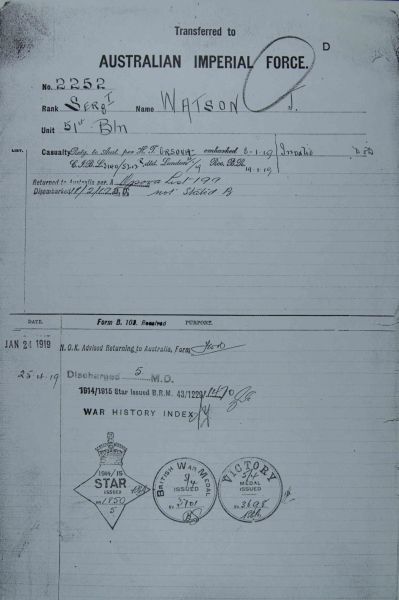 Transferred to
D
AUSTRALIAN IMPERIAL FORCE.
No. 2252
Rank SERGT Name WATSON J.
Unit 51st Btn
LIST. Casualty Retg. to Aust. per H.T. URSOVA embarked 8-1-19 Invalid
Returned to Australia per. List 199
Disembarked 18/2/19 not Stated B
DATE. Form B. 103. Received PURPOSE.
JAN 24 1919 N.O.K. Advised Returning to Australia, Form
25.4.19 Discharged 5 M.D.
1914/1915 Star Issued B.R.M. 43/1229
WAR HISTORY INDEX
1914/15
STAR
ISSUED
5
BRITISH WAR MEDAL
ISSUED
No. 5901
VICTORY
MEDAL
ISSUED
No. 3698